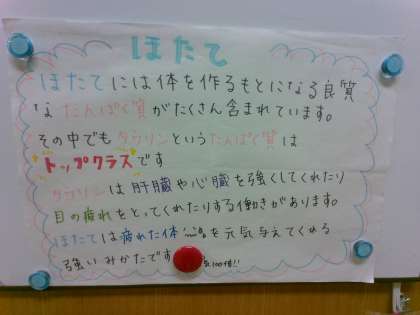 ほたて
ほたてには体を作るもとになる良質
なたんぱく質がたくさん含まれています。
その中でもタウリンというたんぱく質は
トップクラスです
タウリンは肝臓や心臓を強くしてくれたり
目の疲れをとってくれたりする働きがあります。
ほたては疲れた体に を元気与えてくれる
強いみかたです